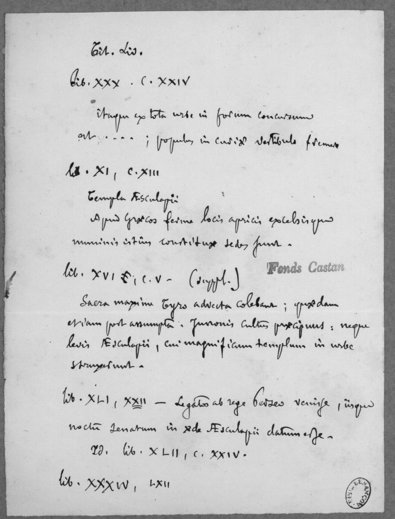 Tit. Liv.
Lib. XXX . C. XXIV
itaque ex tota urbe in forum concursum
est .... ; populus in curiæ vestibulo
lib. XI, C. XIII
templa Æsculapii
Apud Græcos ferme locis apricis excelsisque
numinis istius constitutæ sedes sunt.
lib. XVI, C. V - (suppl.)
Fonds Castan
Sacra maxime Tyro advecta colebant ; quædam
etiam post assumpta. Junonis cultus præcipuus ; neque
levis Æsculapii, cui magnificum templum in urbe
struxerunt.
lib. XLI, XXII — Legatos ab rege Perseo venisse, iisque
noctu senatum in æde Æsculapii datum esse.
Id. lib. XLII, C. XXIV.
lib. XXXIV, LXII